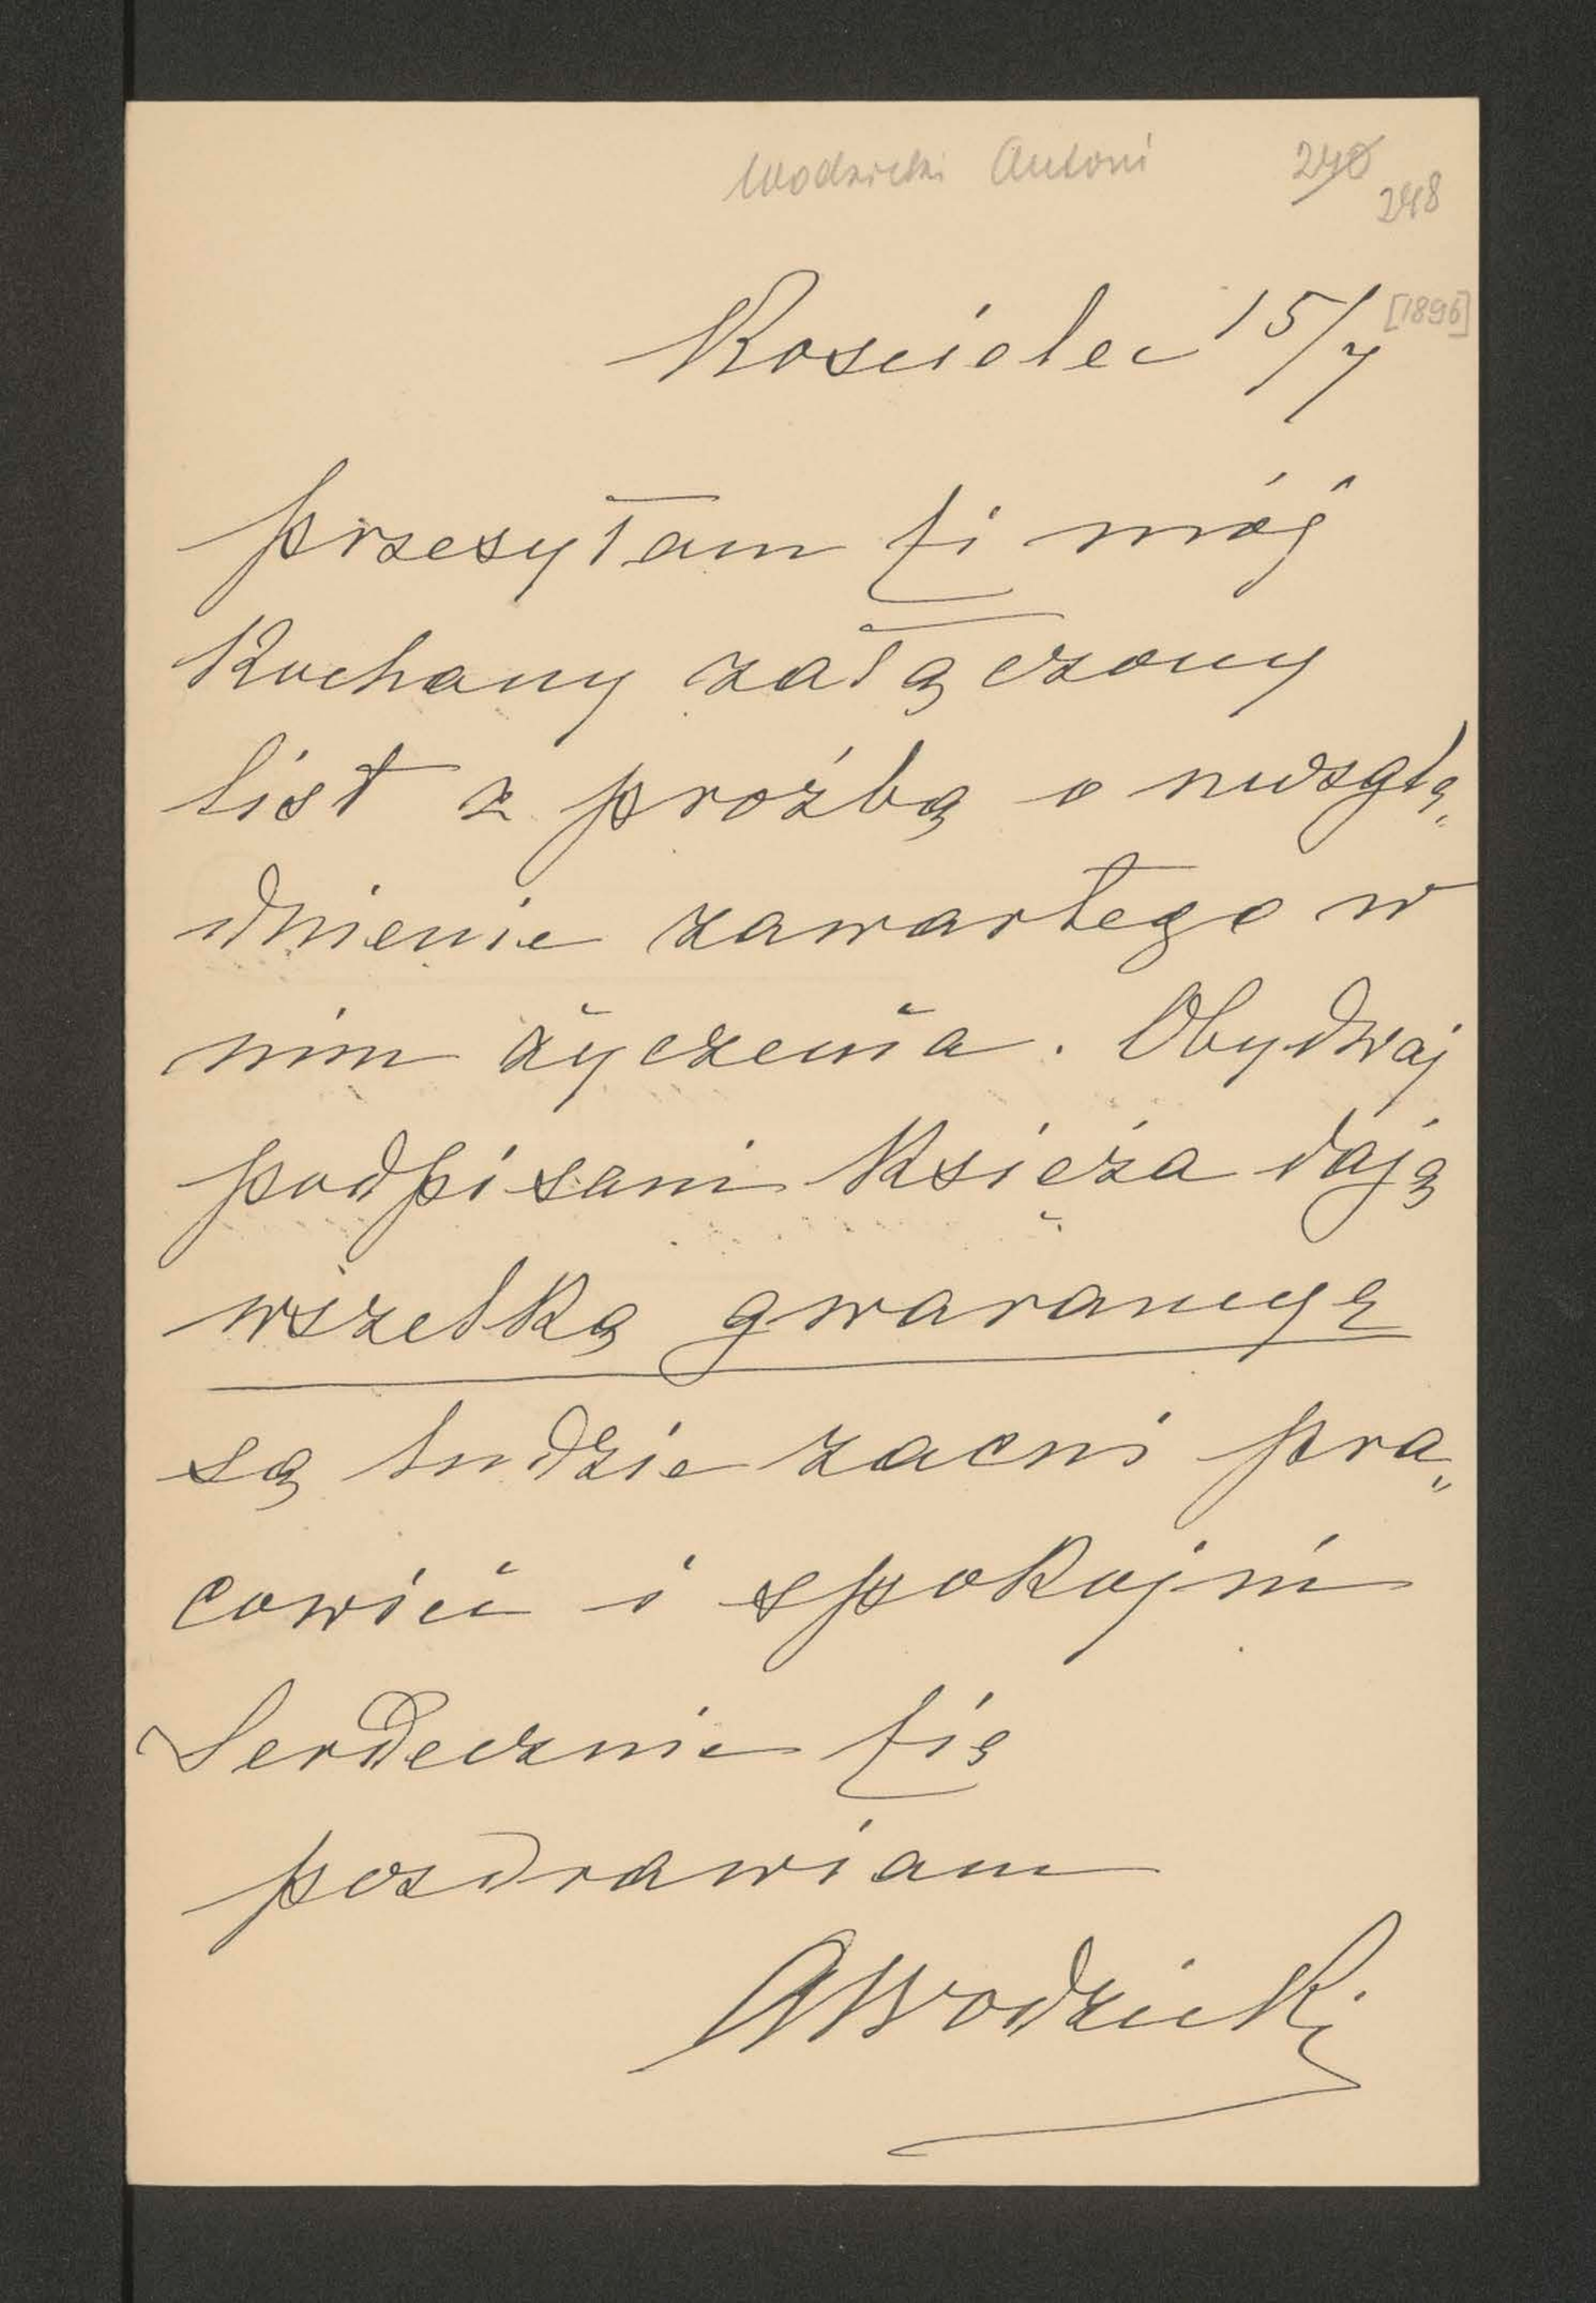 Wodzicki Antoni 240
248
Kościelec 15/7 [1896]
przesyłam Ci mój
Kochany załączony
list z prośbą o uwzglę„
dnienie zawartego w
nim życzenia. Obydwaj
podpisani Księża dają
wszelką gwarancyę
są ludzie zacni pra„
cowici i spokojni
Serdecznie Cię
pozdrawiam
AWodzicki